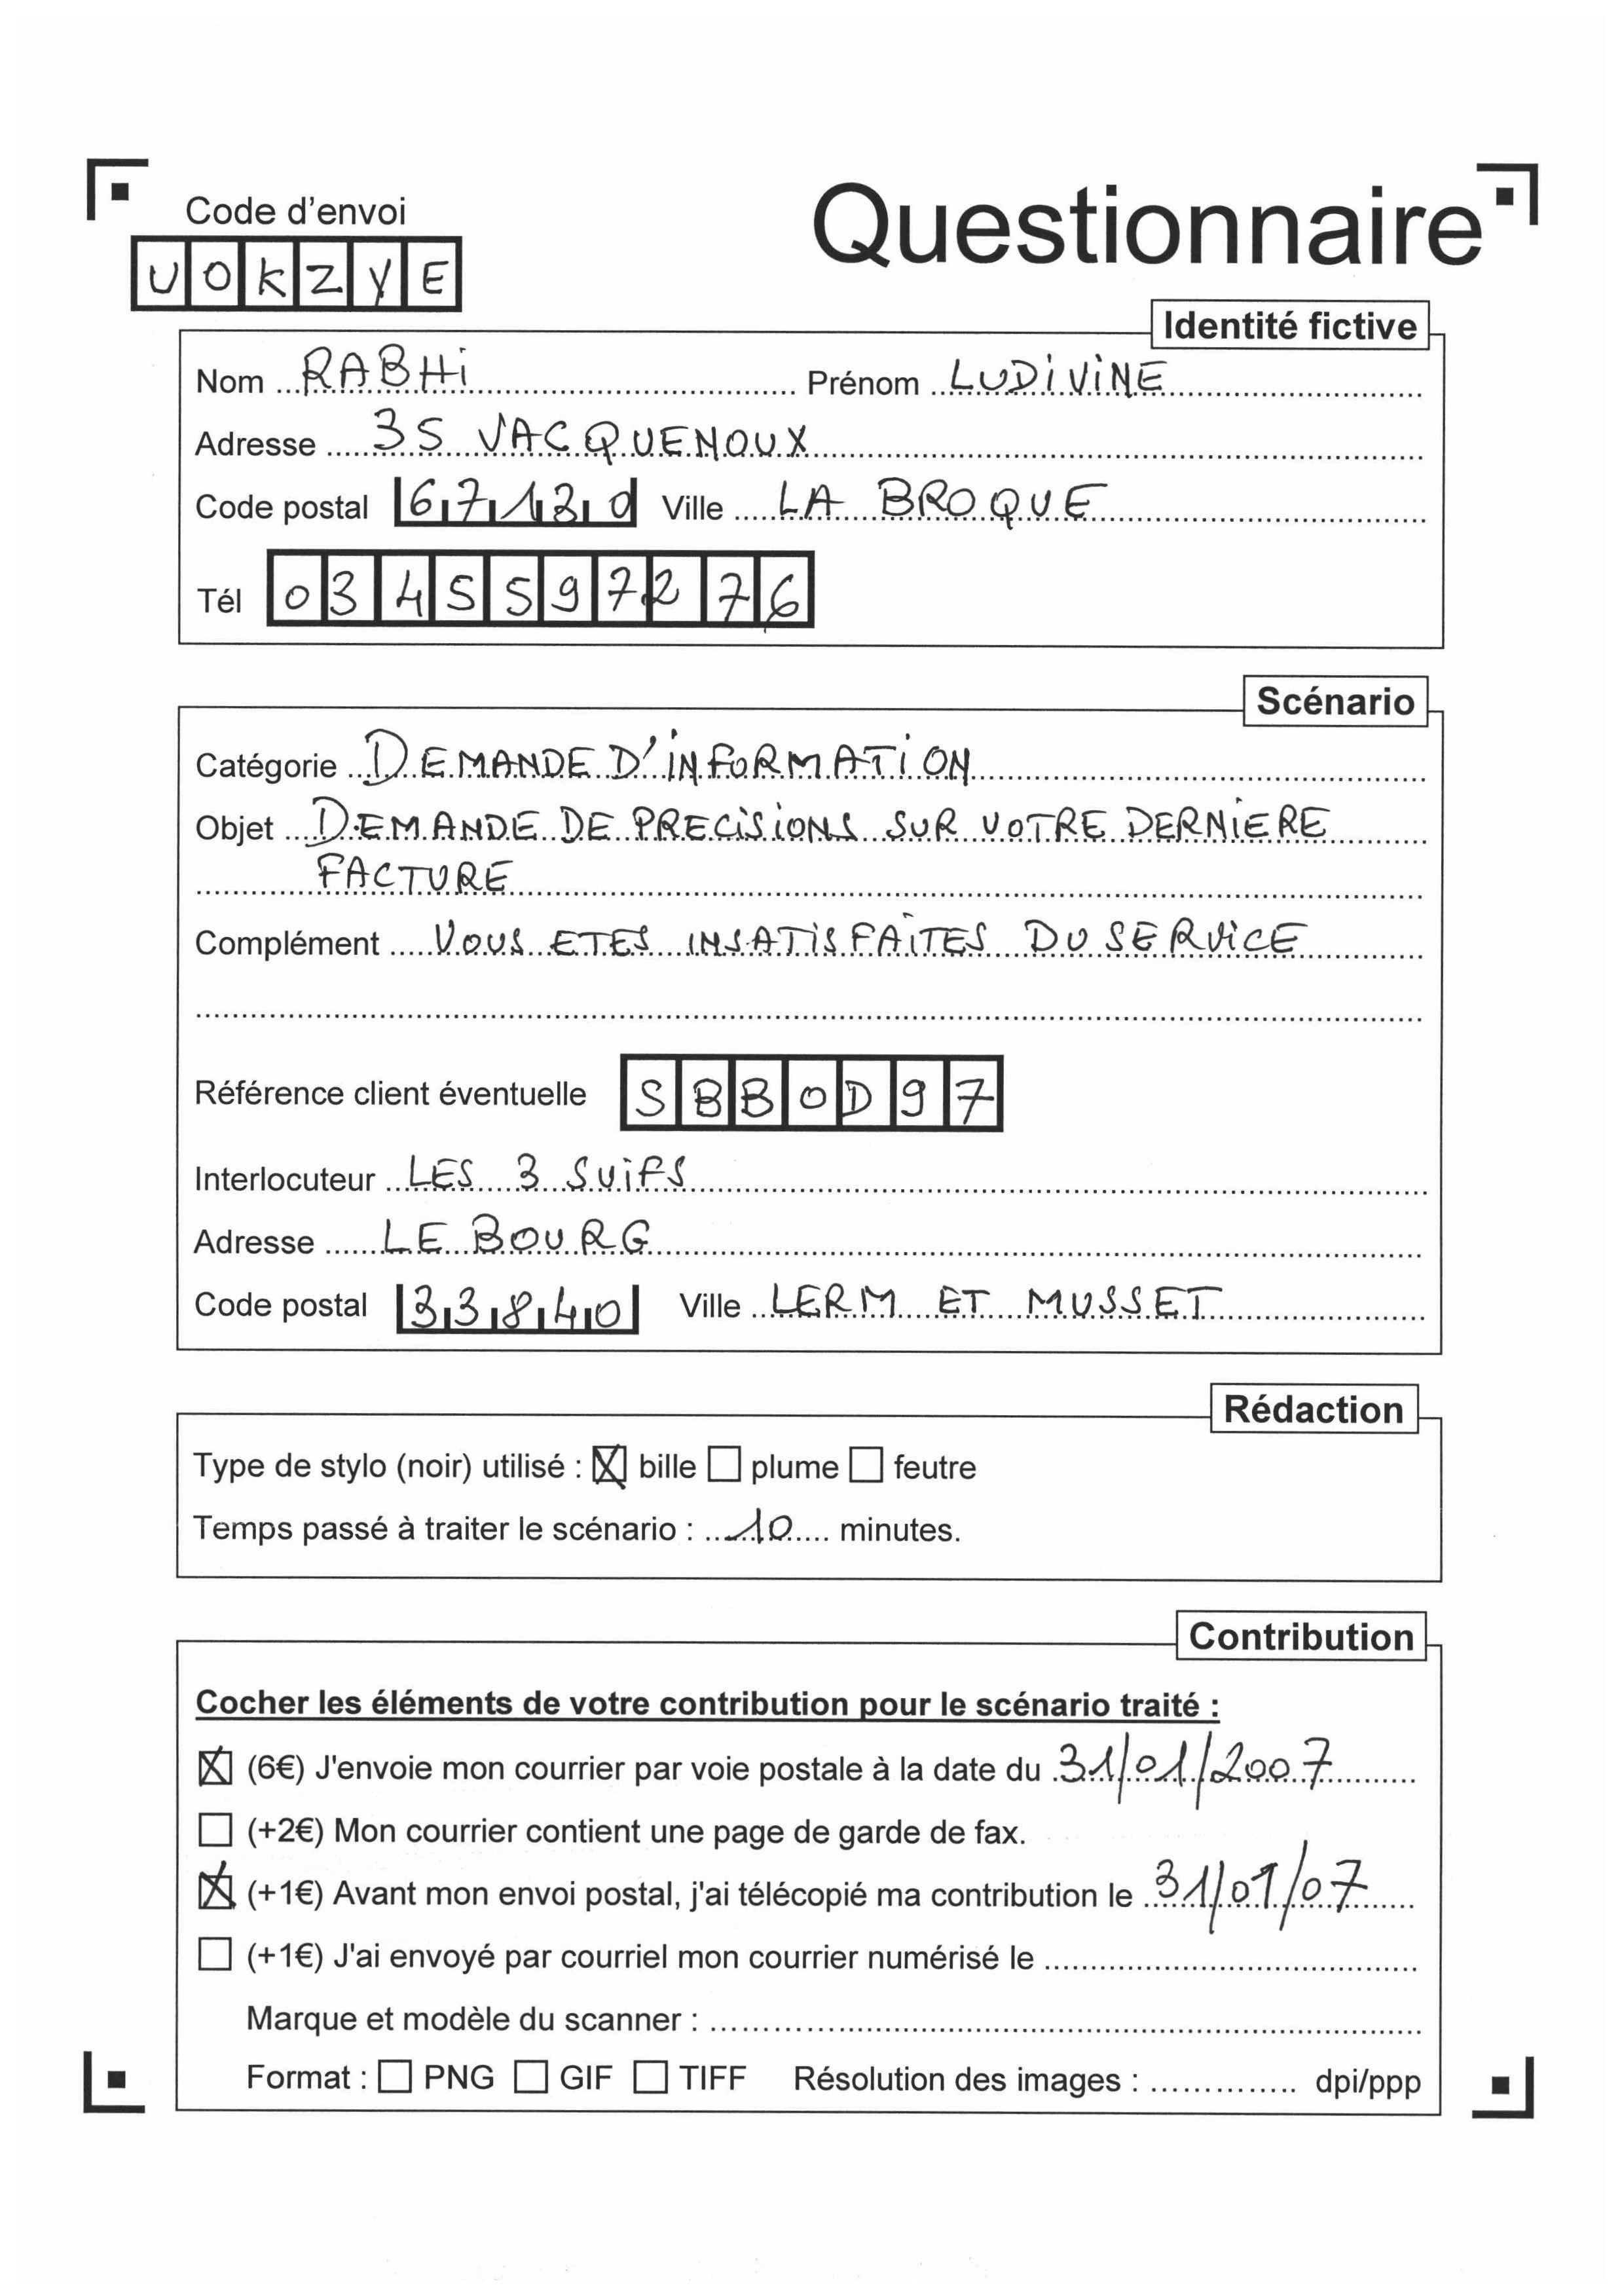 Code d'envoi
Questionnaire
UOKZYE
Identité fictive
Nom RABHi Prénom LUDiViNE
Adresse 35 VACQUENOUX
Code postal 67130 Ville LA BROQUE
Tél 0345597276
Scénario
Catégorie DEMANDE D'iNFORMATiON
Objet DEMANDE DE PRECiSiONS SUR VOTRE DERNiERE
FACTURE
Complément VOUS ETES INSATiSFAiTES DU SERViCE
Référence client éventuelle SBBOD97
Interlocuteur LES 3 SUiFS
Adresse LE BOURG
Code postal 33840 Ville LERM ET MUSSET
Rédaction
Type de stylo (noir) utilisé : ☒ bille ☐ plume ☐ feutre
Temps passé à traiter le scénario : 10 minutes.
Contribution
Cocher les éléments de votre contribution pour le scénario traité :
☒ (6€) J'envoie mon courrier par voie postale à la date du 31/01/2007
☐ (+2€) Mon courrier contient une page de garde de fax.
☒ (+1€) Avant mon envoi postal, j'ai télécopié ma contribution le 31/01/07
☐ (+1€) J'ai envoyé par courriel mon courrier numérisé le
Marque et modèle du scanner :
Format : ☐ PNG ☐ GIF ☐ TIFF Résolution des images : dpi/ppp